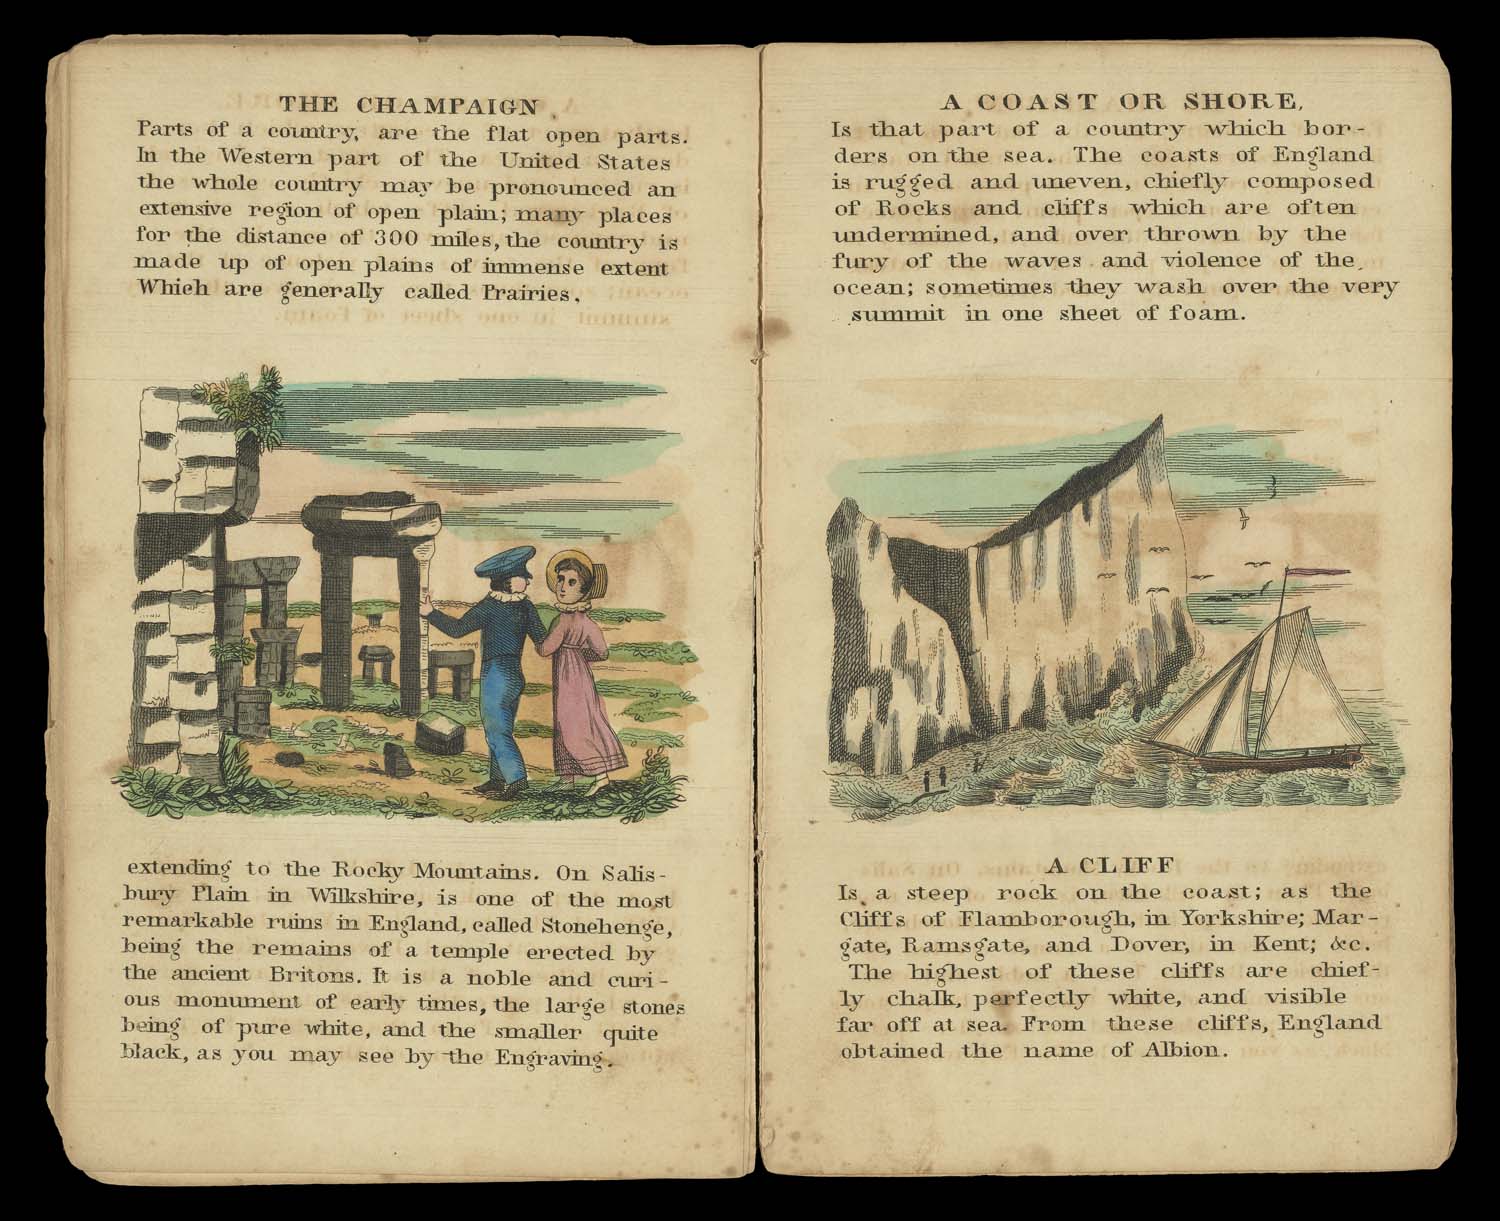 THE CHAMPAIGN
Parts of a country, are the flat open parts.
In the Western part of the United States
the whole country may be pronounced an
extensive region of open plain; many places
for the distance of 300 miles, the country is
made up of open plains of immense extent
Which are generally called Prairies,
extending to the Rocky Mountains. On Salis-
bury Plain in Wilkshire, is one of the most
remarkable ruins in England, called Stonehenge,
being the remains of a temple erected by
the ancient Britons. It is a noble and curi-
ous monument of early times, the large stones
being of pure white, and the smaller quite
black, as you may see by the Engraving.
A COAST OR SHORE,
Is that part of a country which bor-
ders on the sea. The coasts of England
is rugged and uneven, chiefly composed
of Rocks and cliffs which are often
undermined, and over thrown by the
fury of the waves and violence of the
ocean; sometimes they wash over the very
summit in one sheet of foam.
A CLIFF
Is a steep rock on the coast; as the
Cliffs of Flamborough, in Yorkshire; Mar-
gate, Ramsgate, and Dover, in Kent; &c.
The highest of these cliffs are chief-
ly chalk, perfectly white, and visible
far off at sea. From these cliffs, England
obtained the name of Albion.